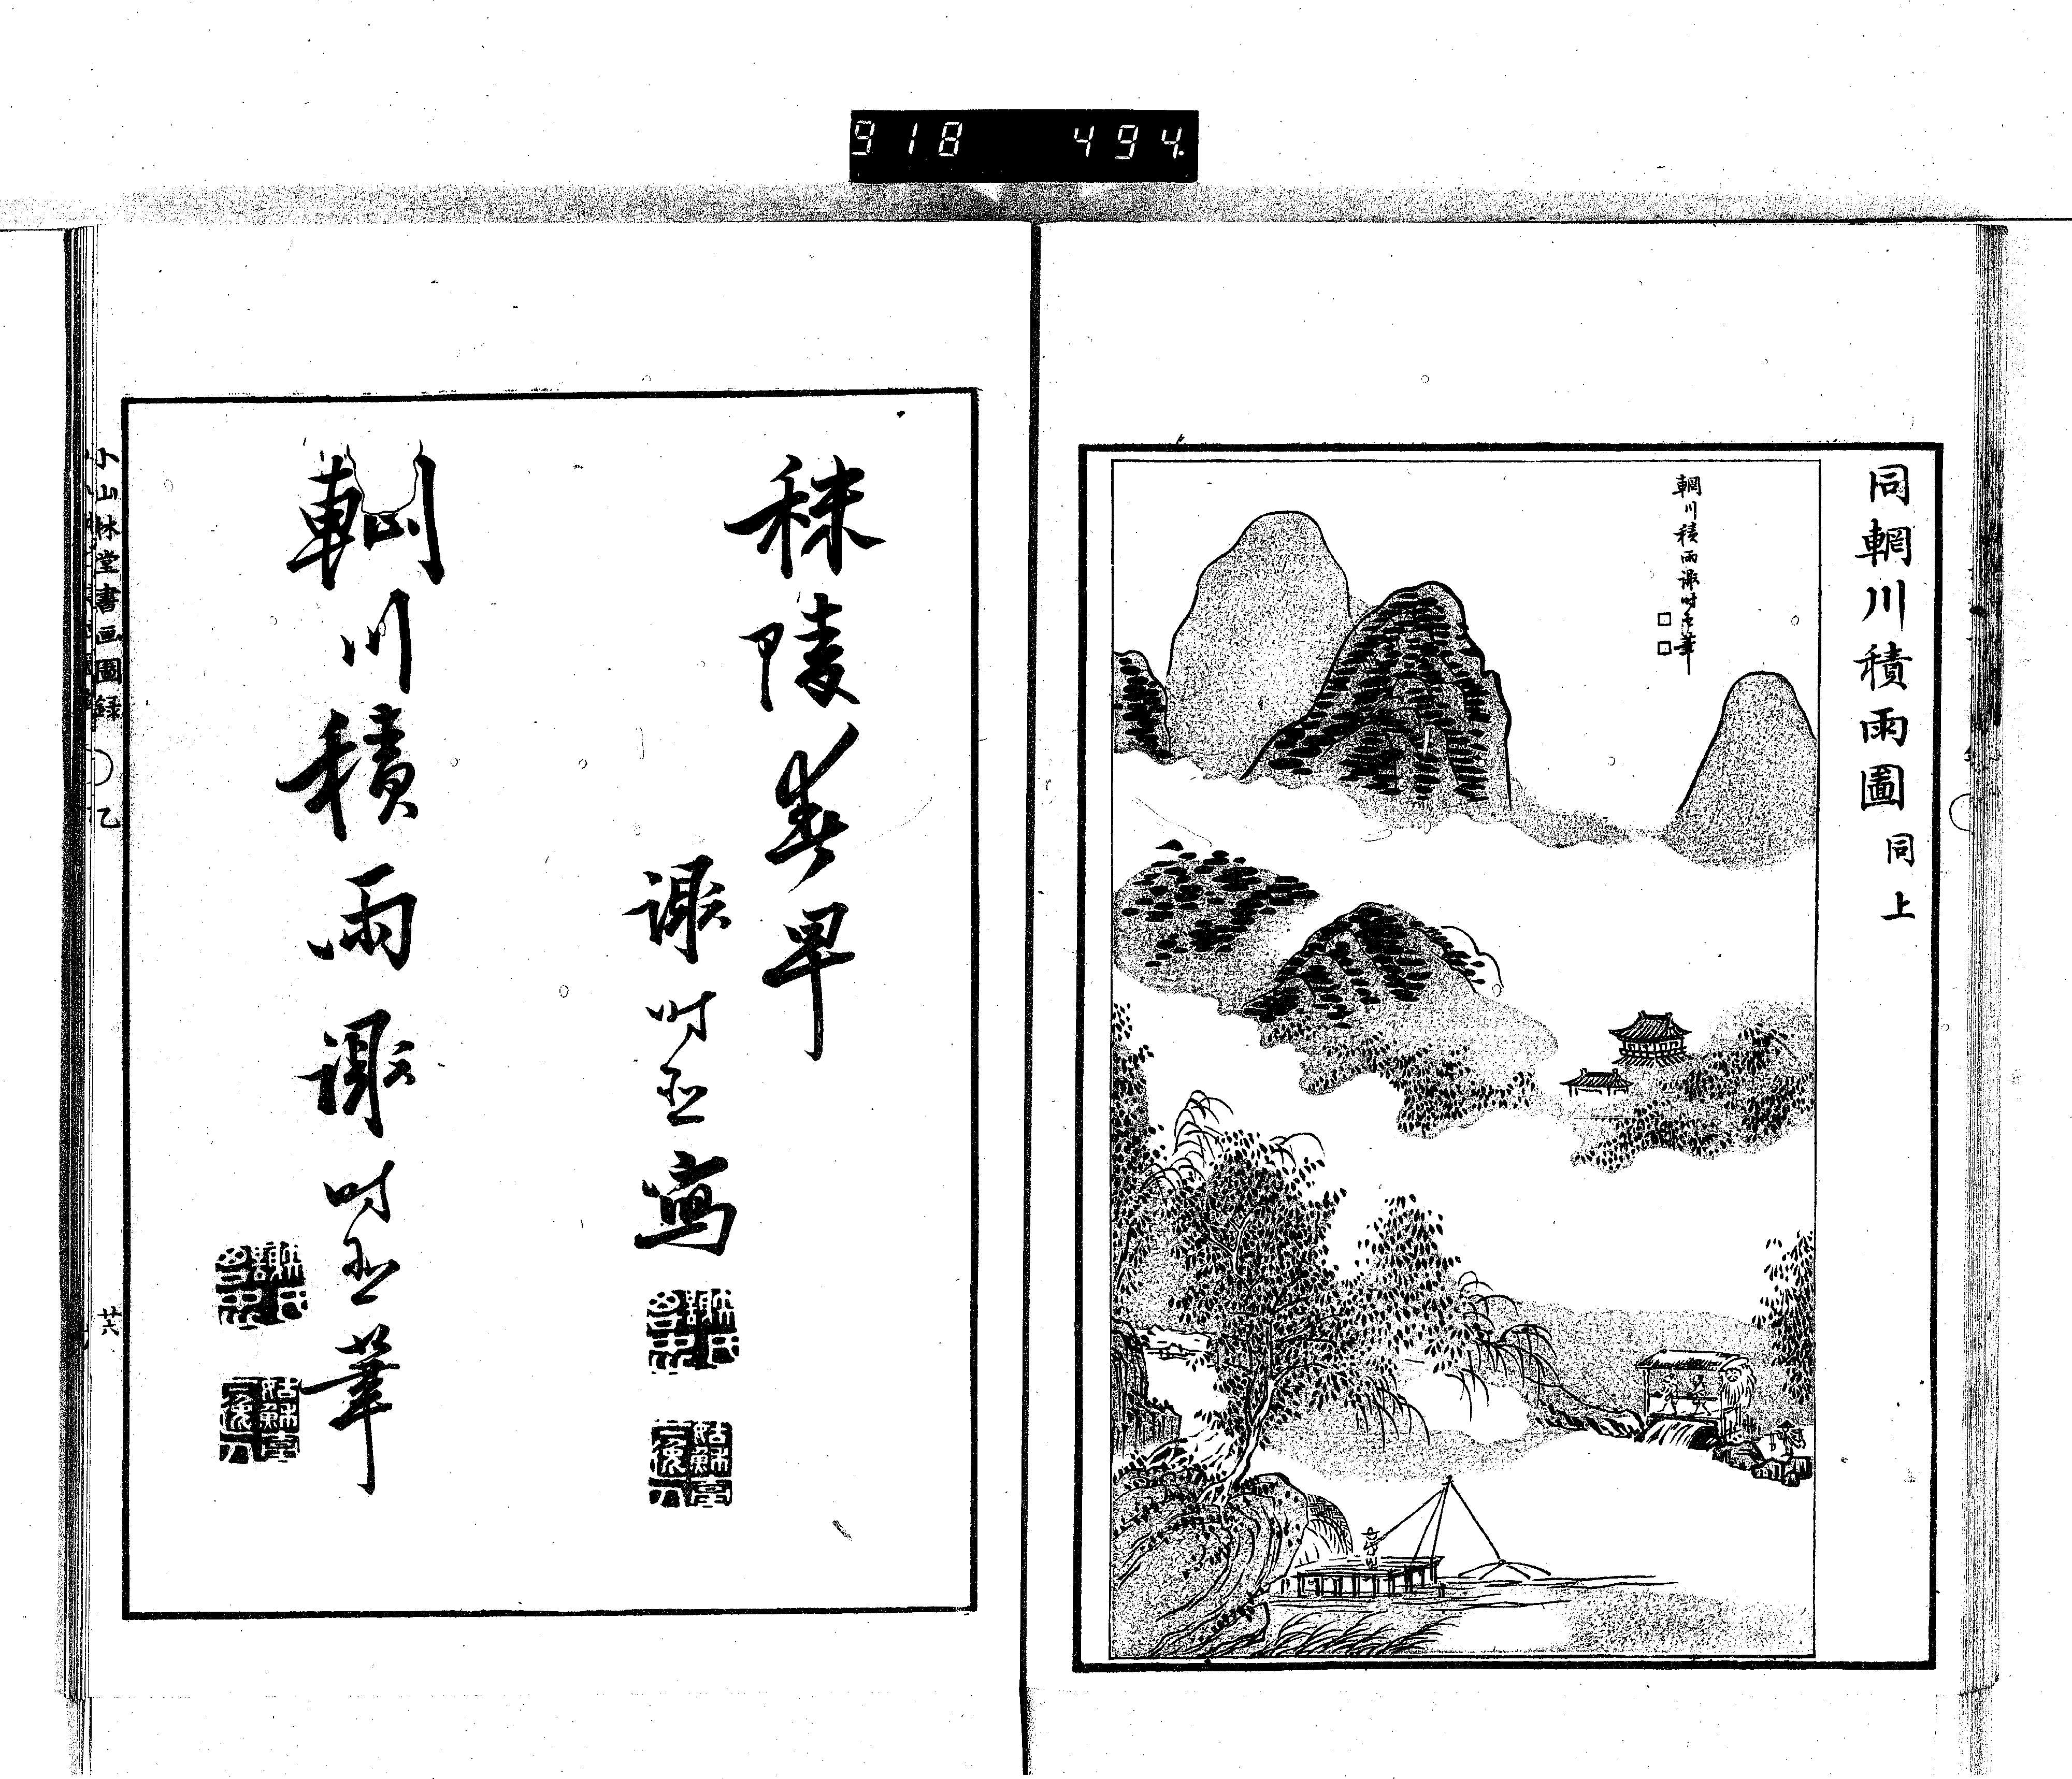 918 494
同輞川積雨圖 同上
輞川積雨謝時臣筆
秣陵春早
謝時臣寫
輞川積雨謝時臣筆
小山林堂書画圖録
乙
廿六